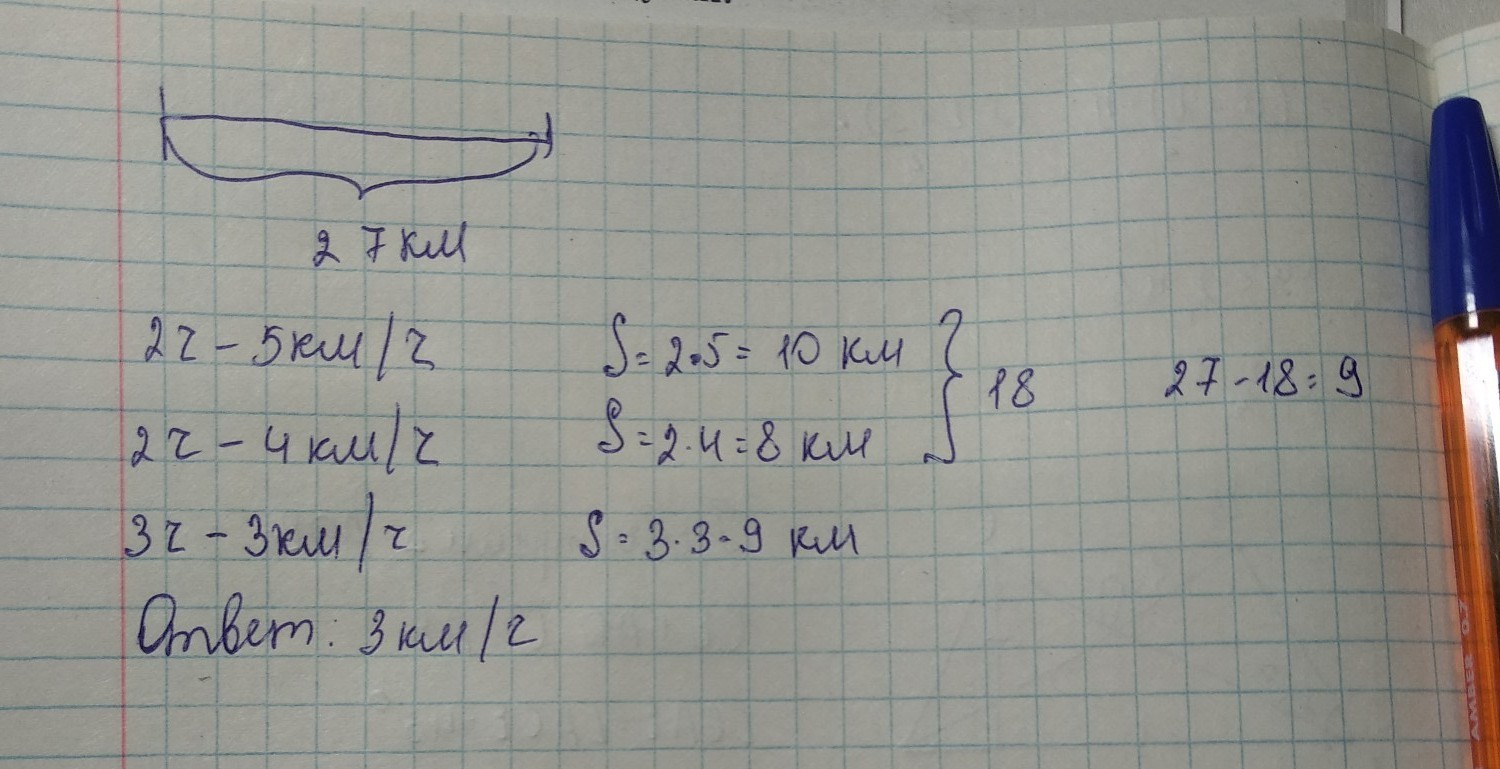 27 км
2ч - 5км/ч S = 2·5 = 10 км 18 27 - 18 = 9
2ч - 4км/ч S = 2·4 = 8 км
3ч - 3км/ч S = 3·3 = 9 км
Ответ: 3км/ч
АМВЕR 0.7